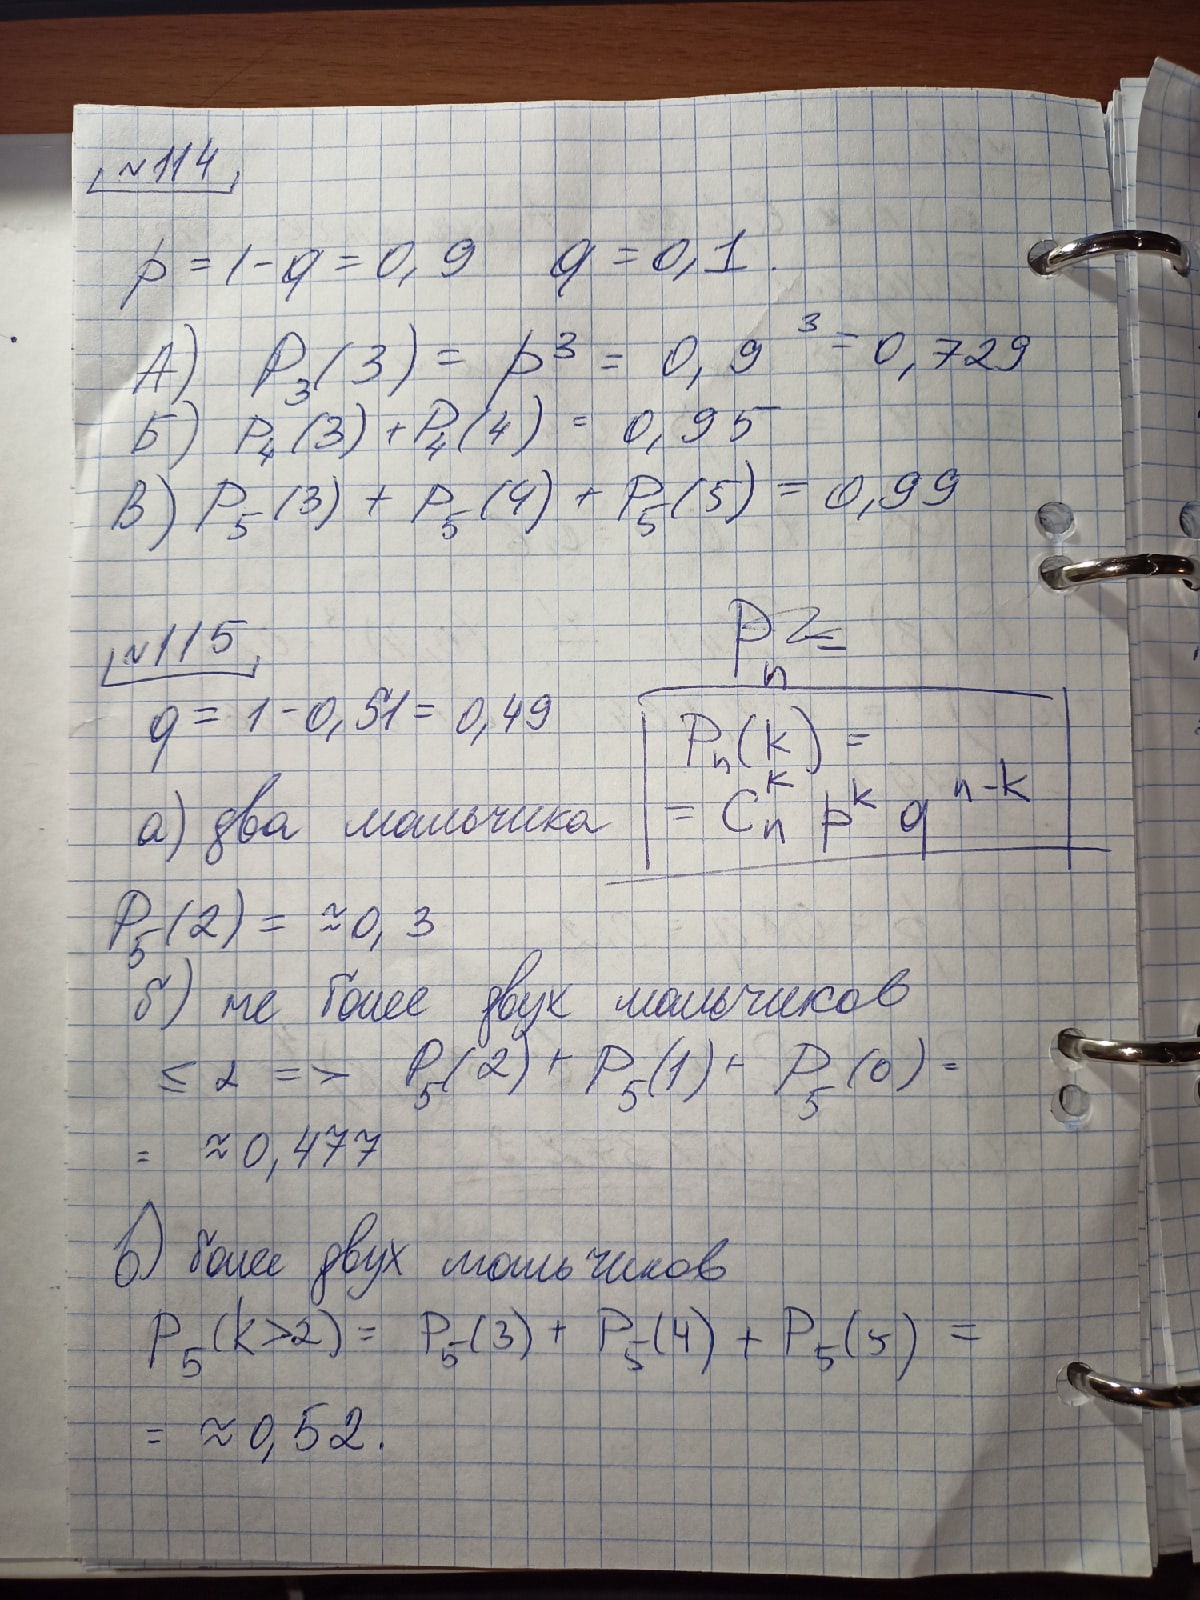 ~114
p = 1-q = 0,9 q = 0,1.
А) P₃(3) = p³ = 0,9³ = 0,729
Б) P₄(3) + P₄(4) = 0,95
В) P₅(3) + P₅(4) + P₅(5) = 0,99
~115
q = 1-0,51 = 0,49
Pₙ(k) =
= Cₙᵏ pᵏ qⁿ⁻ᵏ
а) два мальчика
P₅(2) = ≈0,3
б) не более двух мальчиков
≤ 2 => P₅(2) + P₅(1) + P₅(0) =
= ≈0,477
в) более двух мальчиков
P₅(k>2) = P₅(3) + P₅(4) + P₅(5) =
= ≈0,52.